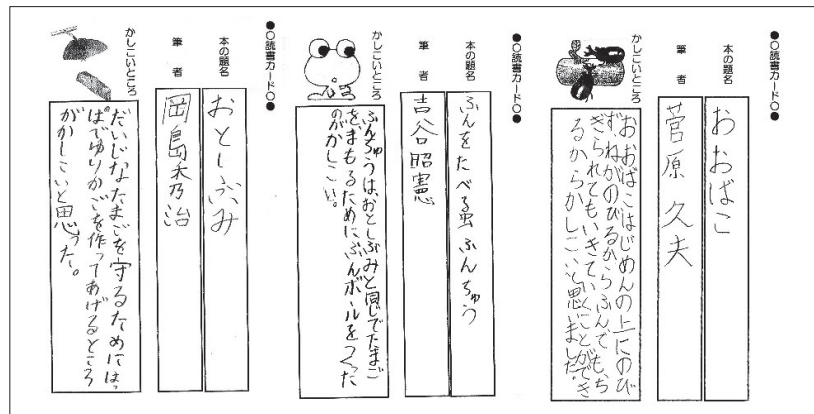 ●○読書カード○●
本の題名
おおばこ
筆者
菅原 久夫
かしこいところ
おおばこはじめんの上にのび
ずねがのびるからふんでもち
ぎられてもいきていくことができ
るからかしこいと思いました。
●○読書カード○●
本の題名
ふんをたべる虫ふんちゅう
筆者
吉谷昭憲
かしこいところ
ふんちゅうは、おとしぶみと同じでたまご
を、まもるためにふんボールをつくった
のがかしこい。
●○読書カード○●
本の題名
おとしぶみ
筆者
岡島秀治
かしこいところ
だいじなたまごを守るためにはっ
ぱでゆりかごを作ってあげるところ
がかしこいと思った。